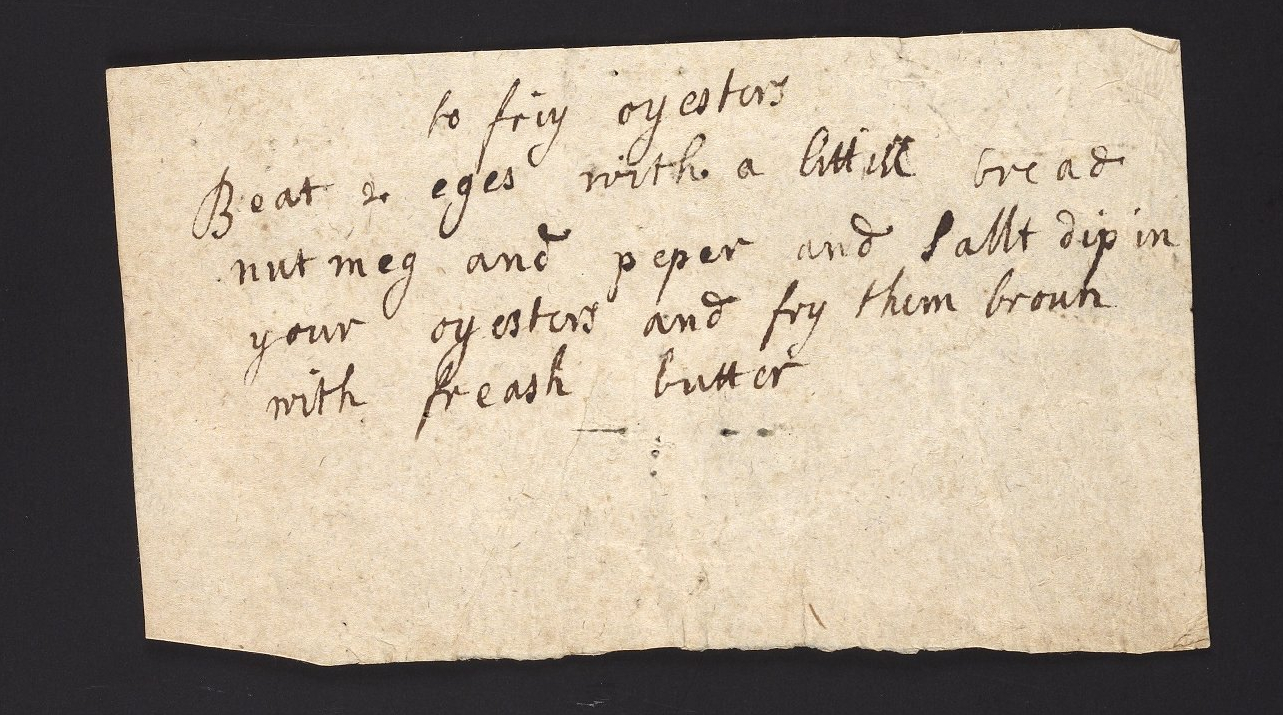 to friy oyesters
Beat 2 eges with a littill bread
nutmeg and peper and sallt dip in
your oyesters and fry them broun
with freash butter